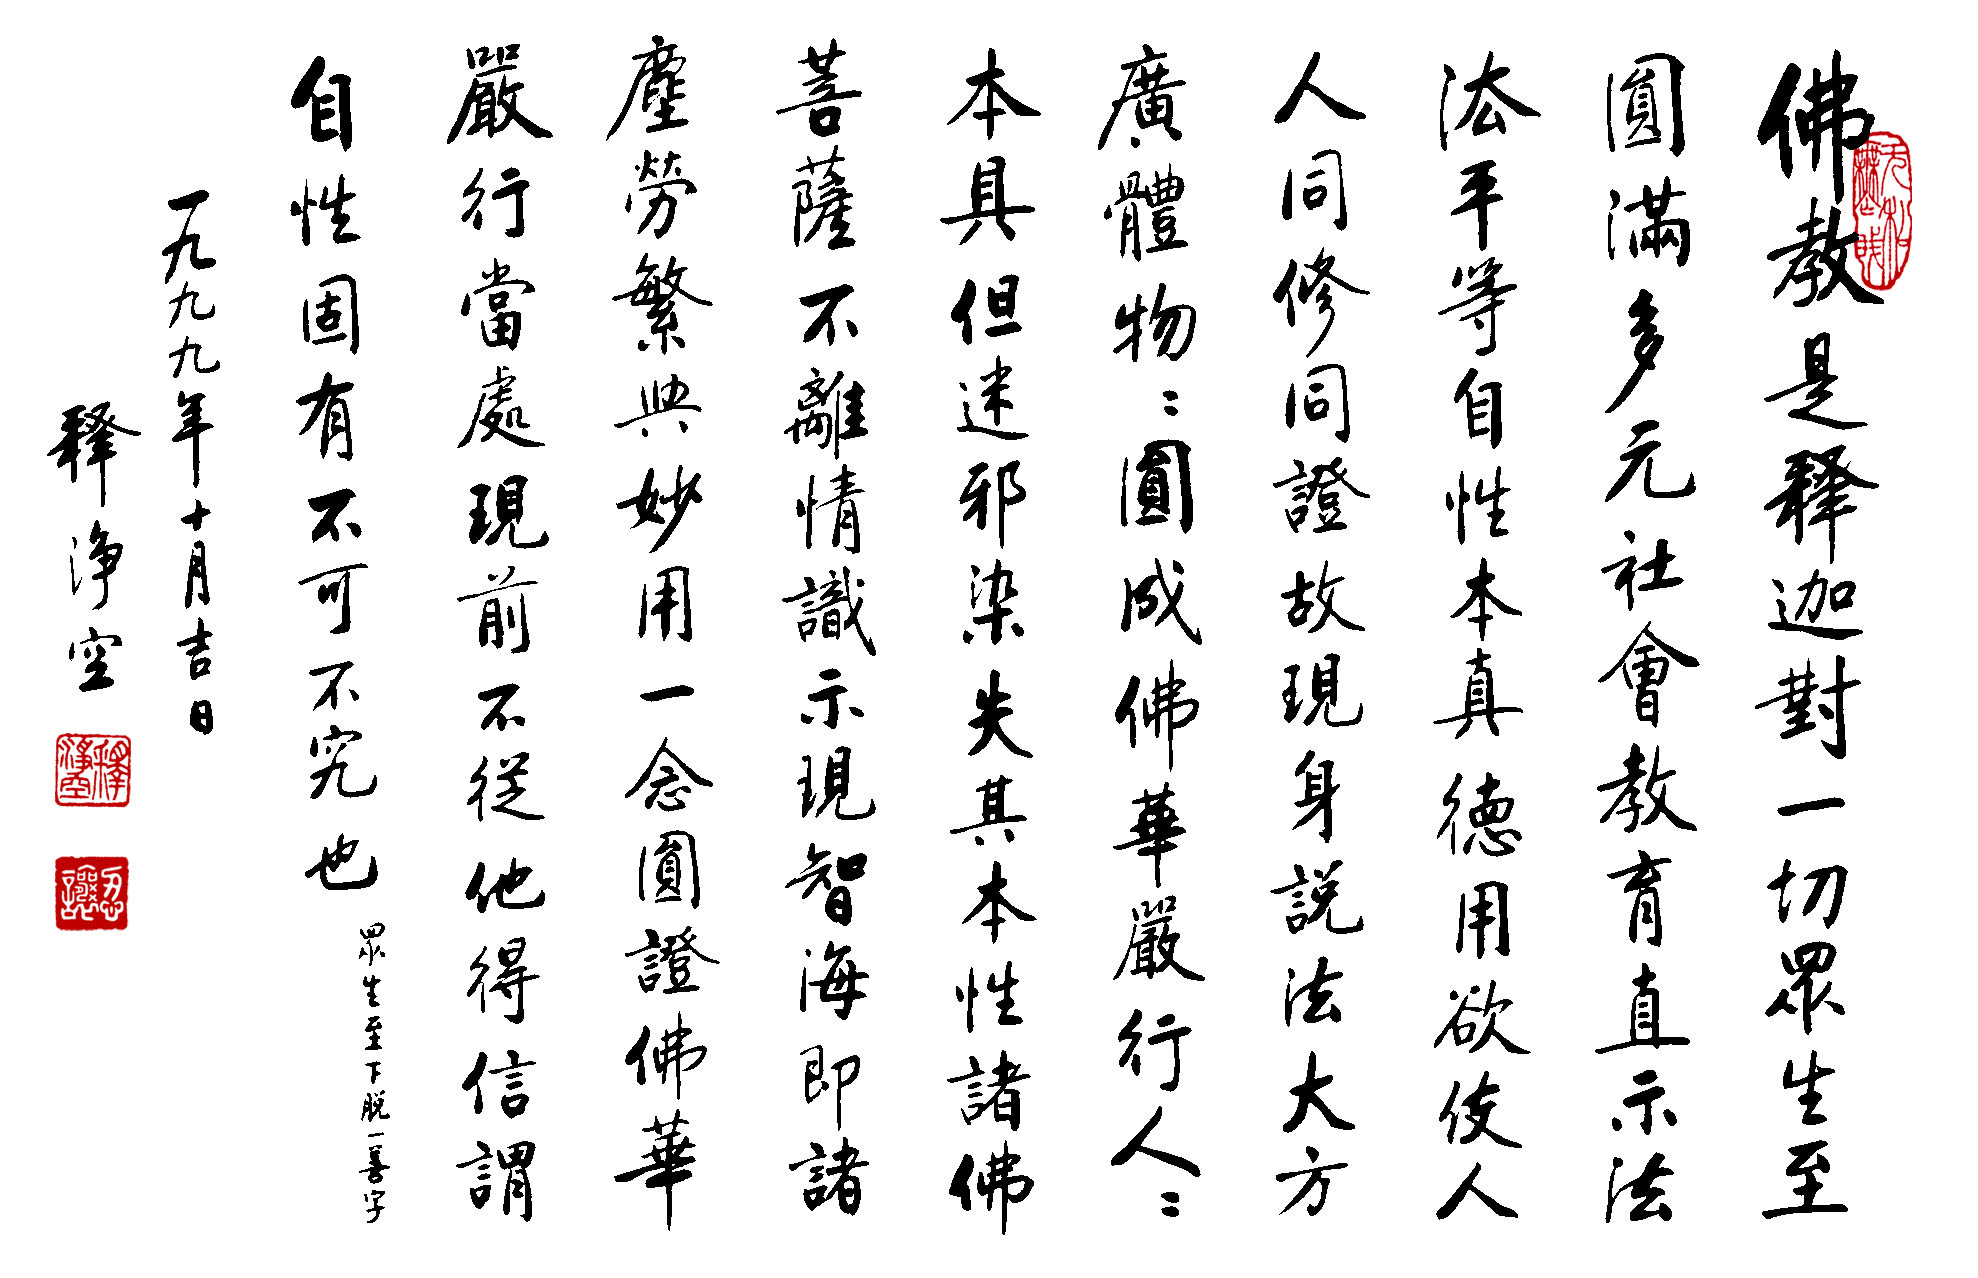 佛教是释迦對一切眾生至
圓滿多元社會教育直示法
法平等自性本真德用欲使人
人同修同證故現身説法大方
廣體物〻圓成佛華嚴行人〻
本具但迷邪染失其本性諸佛
菩薩不離情識示現智海即諸
塵勞繁興妙用一念圓證佛華
嚴行當處現前不從他得信謂
自性固有不可不究也
眾生至下脱一善字
一九九九年十月吉日
释淨空
釋淨空